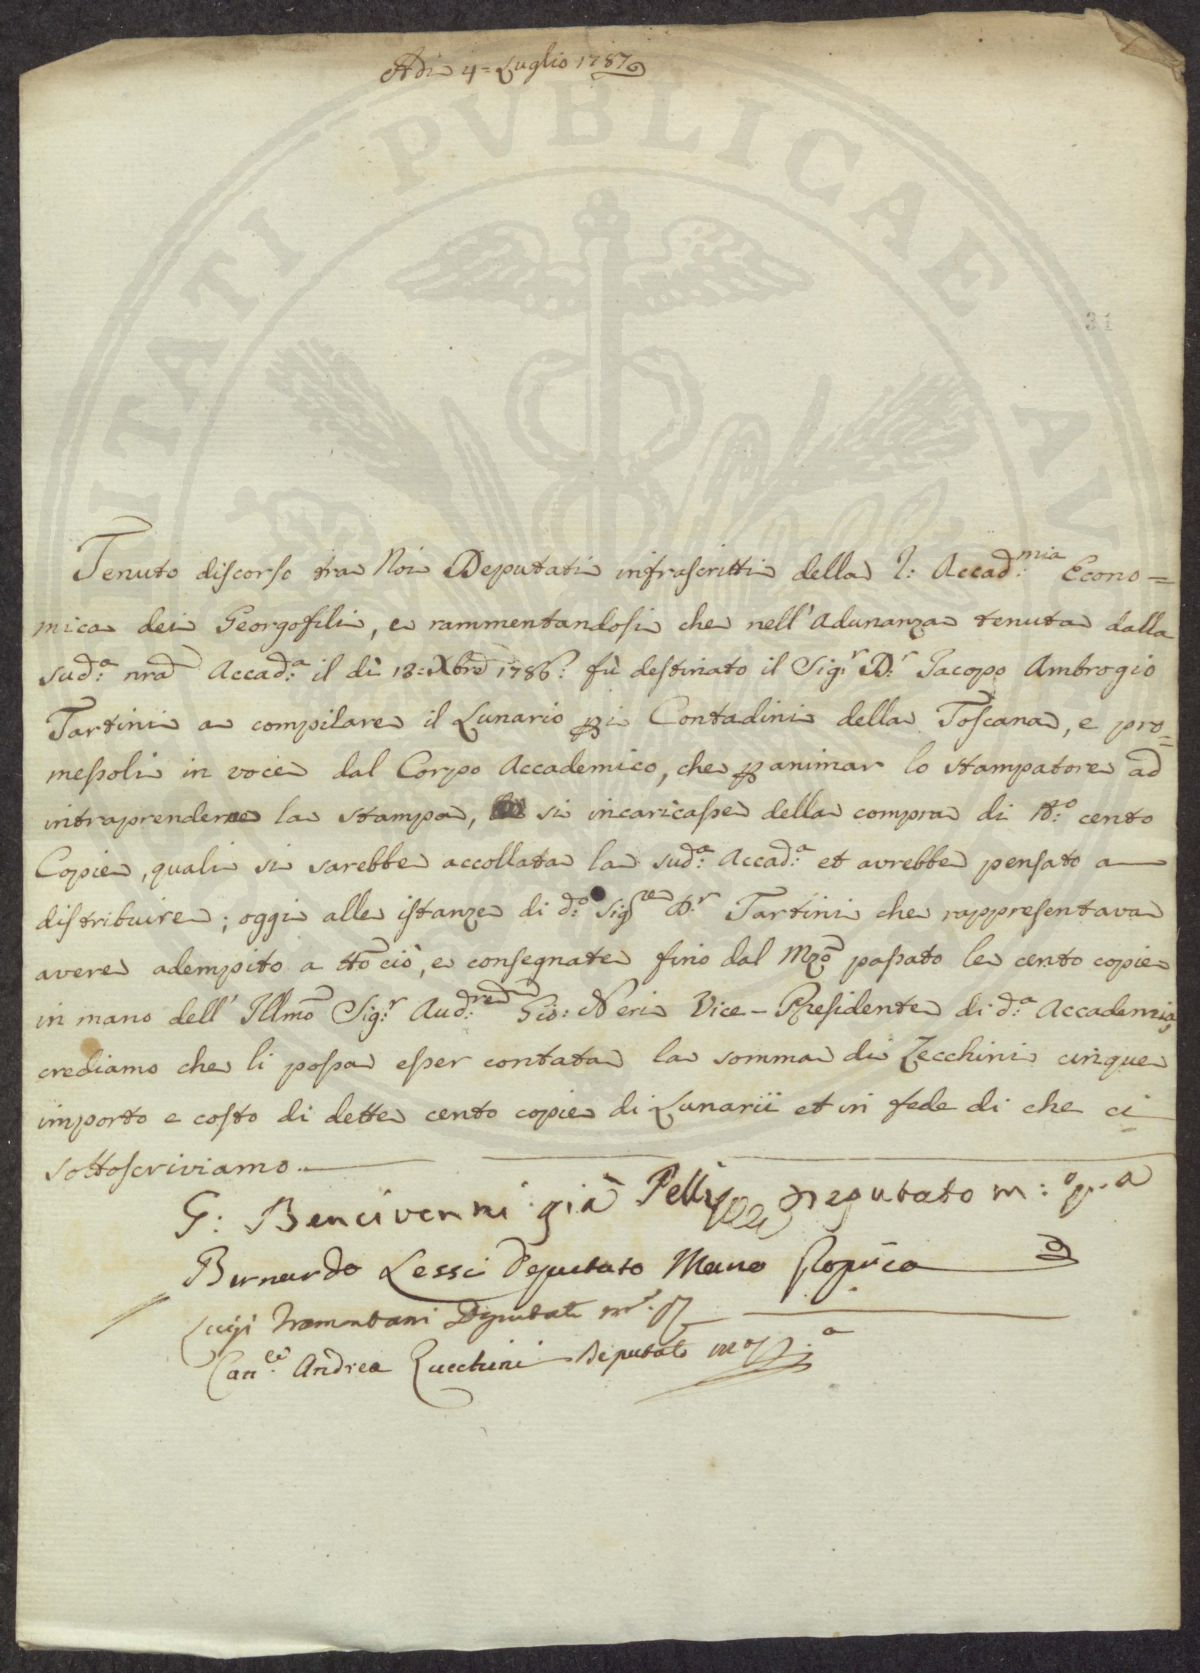 Adi 4= Luglio 1787
31
Tenuto discorso tra Noi Deputati infrascritti della I: Accad:mia Econo=
mica dei Georgofili, e rammentandosi che nell' Adunanza tenuta dalla
sud:a nra Accad:a il dì 13: Xbre 1786: fù destinato il Sig:r D:r Jacopo Ambrogio
Tartini a compilare il Lunario p i Contadini della Toscana, e pro=
messoli in voce dal Corpo Accademico, che p animar lo stampatore ad
intraprendere la stampa, si incaricasse della compra di N:o cento
Copie, quali si sarebbe accollata la sud:a Accad:a et avrebbe pensato a
distribuire; oggi alle istanze di d:o Sigre D:r Tartini che rappresentava
avere adempito a tto ciò, e consegnate fino dal Mzo passato le cento copie
in mano dell' Illmo Sig:r Aud:re Gio: Neri Vice-Presidente di d:a Accademia,
crediamo che li possa esser contata la somma di Zecchini cinque
importo e costo di dette cento copie di Lunarii et in fede di che ci
sottoscriviamo.
G: Bencivenni già Pelli Deputato m:o p:a
Bernardo Lessi Deputato Mano Propria
Luigi Tramontani Deputato m:o p:
Can:co Andrea Zucchini Deputato m:o p:a
PUBLICAE